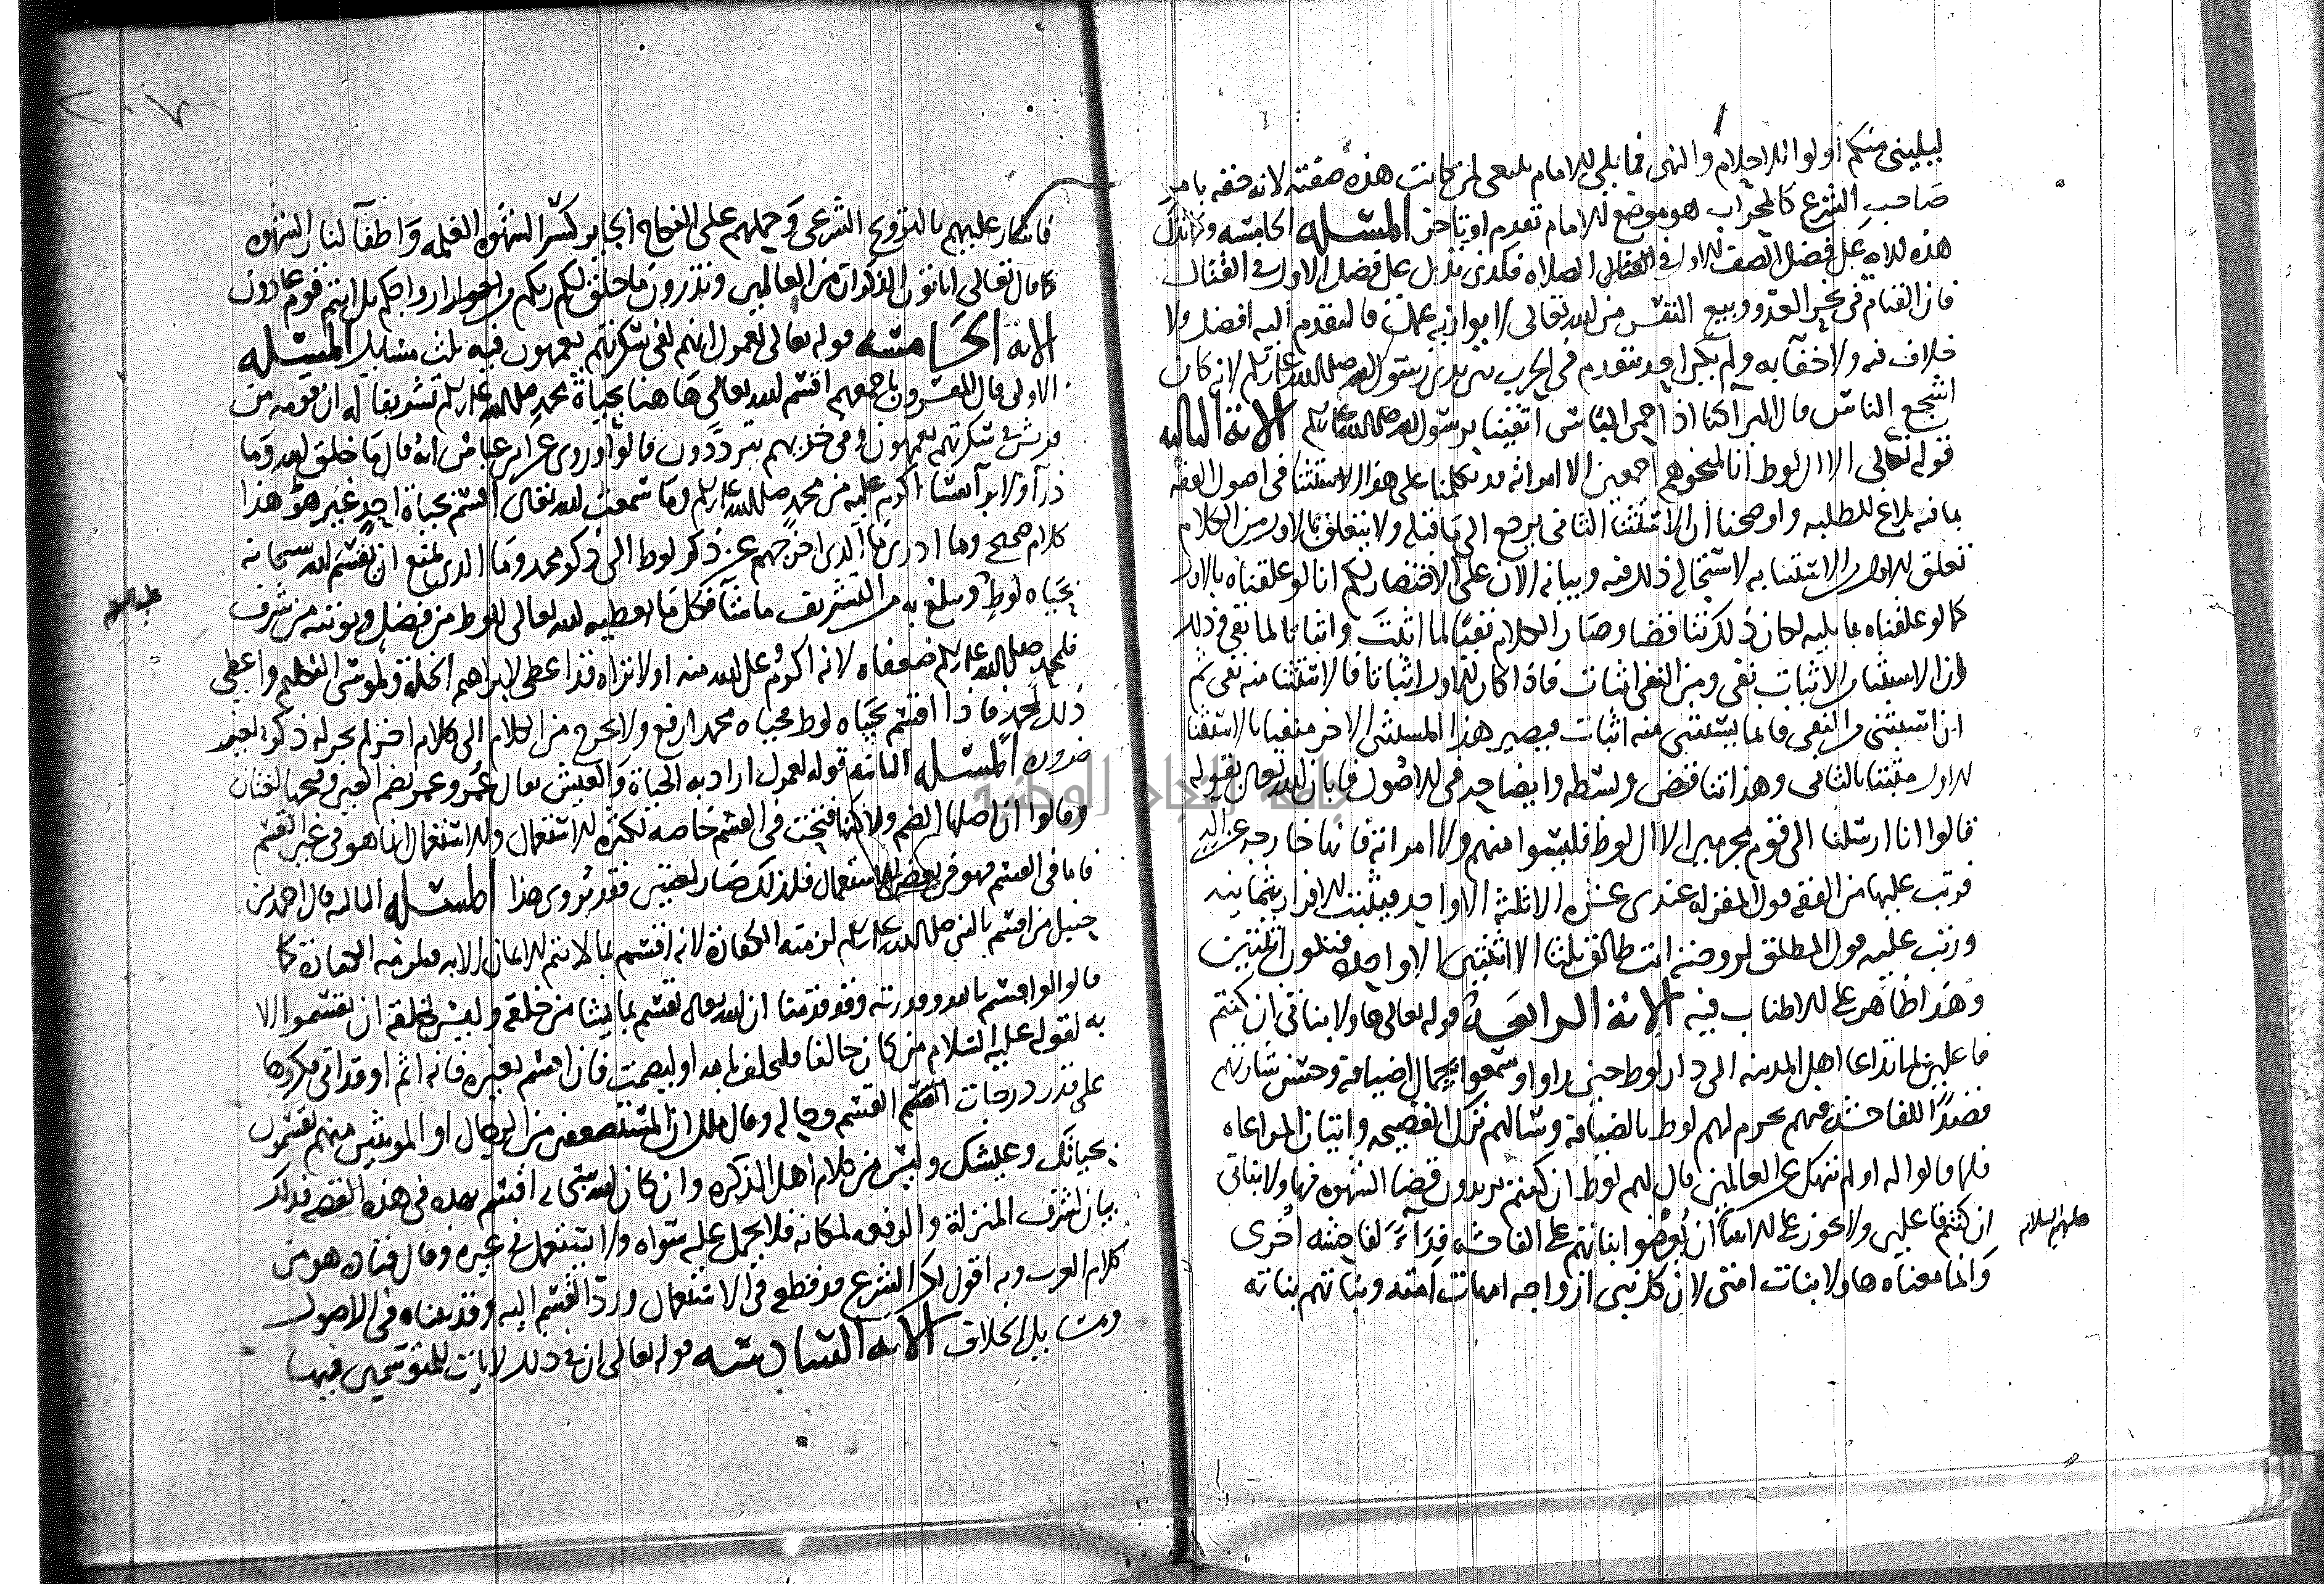 ليليني منكم أولوا الاحلام والنهى فما يلي الامام ينبغي لمن كانت هذه صفته لانه حقه بامر
صاحب الشرع كالمحراب هو موضع الامام تقدم او تاخر المسله الخامسه وكما تدل
هذه الايه على فضل الصف الاول في الصلاه فكذلك تدل على فضل الاول في القتال
فان القيام في نحر العدو وبيع النفس من الله تعالى لا يوازيه عمل فالتقدم اليه افضل ولا
خلاف فيه ولا خفآ به ولم يكن احد يتقدم في الحرب بين يدي رسول الله صلى الله عليه وسلم لانه كان
اشجع الناس قال البرآ كنا اذا احمر الباس اتقينا برسول الله صلى الله عليه وسلم الايه الثالثه
قوله تعالى الا ال لوط انا لمنجوهم اجمعين الا امراته قد تكلمنا على هذا الاستثنا في اصول الفقه
بما فيه بلاغ للطلبه واوضحنا أن الاستثنا الثاني يرجع الى ما قبله ولا يتعلق بالاول من الكلام
تعلق الاول الاستثنا به لاستحالة ذلك فيه وبيانه الان على الاختصار لكم انا لو علقناه بالاول
كما لو علقناه بما يليه لكان ذلك تناقضا وصار الكلام نفيا لما اثبت واثباتا لما نفي وذلك
لان الاستثنا من الاثبات نفي ومن النفي اثبات فاذا كان الاول اثباتا فالاستثنا منه نفي ثم
ان استثني من النفي فانما يستثنى منه اثبات فيصير هذا المستثنى الاخر منفيا بالاستثنا
الاول مثبتا بالثاني وهذا تناقض وبسطه وايضاحه في الاصول فابان الله تعالى بقوله
قالوا انا ارسلنا الى قوم مجرمين الا ال لوط فليسوا منهم ولا امراته فانها خارجه عن ال
فرتب عليها من الفقه قول المقر له عندي عشره الا ثلثه الا واحد فيثبت الاقرار بثمانيه
ورتب عليه قول المطلق لزوجته انت طالق ثلثا الا اثنتين الا واحده فتكون اثنتين
وهذا ظاهر على الاطناب فيه الايه الرابعه قوله تعالى هاولا بناتي ان كنتم
فاعلين لما تداعا اهل المدينه الى دار لوط حين راوا وسمعوا بجمال اضيافه وحسن شارتهم
قصدًا للفاحشه فيهم تحرم لهم لوط بالضيافه وسالهم ترك الفضيحه واتيان المراعاه
فلما قالوا له او لم ننهك عن العالمين قال لهم لوط ان كنتم تريدون قضا الشهوه فهاولا بناتي
ان كنتم فاعلين ولا يجوز على الانبيا ان يعرضوا بناتهم على الفاحشه فدآء لفاحشه اخرى
عليهم السلام
وانما معناه هاولا بنات امتي لان كل نبي ازواجه امهات امته وبناتهم بناته
٢٠٧
فاشار عليهم بالتزويج الشرعي وحملهم على النكاح الجايز كسرا لشهوه الغلمه واطفآ لنار الشهوه
كما قال تعالى اتاتون الذكران من العالمين وتذرون ما خلق لكم ربكم من ازواجكم بل انتم قوم عادون
الايه الخامسه قوله تعالى لعمرك انهم لفي سكرتهم يعمهون فيه ثلث مسايل المسيله
الاولى قال المفسرون باجمعهم اقسم الله تعالى هاهنا بحياة محمد صلى الله عليه وسلم تشريفا له ان قومه من
قريش في سكرتهم يعمهون وفي حيرتهم يترددون قالوا وروي عن ابن عباس انه قال ما خلق الله وما
ذرآ ولا برآ نفسا اكرم عليه من محمد صلى الله عليه وسلم وما سمعت الله تعالى اقسم بحياة احد غيره وهذا
كلام صحيح وما ادري ما الذي اخرجهم عن ذكر لوط الى ذكر محمد وما الذي يمنع ان يقسم الله سبحانه
بحياه لوط ويبلغ به من التشريف ما شا فكل ما يعطيه الله تعالى للوط من فضل ويوتيه من شرف
عليه السلام
فلمحمد صلى الله عليه وسلم ضعفاه لانه اكرم على الله منه اولا تراه قد اعطى لابراهيم الخله ولموسى التكليم واعطى
ذلك لمحمد فاذا اقسم بحياه لوط فحياه محمد ارفع ولا يخرج من الكلام الى كلام اخر لم يجر له ذكر لغير
ضروره المسله الثانيه قوله لعمرك اراد به الحياة والعيش يقال عمر وعمر بضم العين وفتحها لغتان
وقالوا ان اصلها الضم ولاكنها فتحت في القسم خاصه لكثره الاستعمال والاستعمال انما هو في غير القسم
فاما في القسم فهو في بعض الاستعمال فلذلك صار لغتين فقد بروى هذا المسله الثالثه قال احمد بن
حنبل من اقسم بالنبي صلى الله عليه وسلم لزمته الكفارة لانه اقسم بما لا يتم الايمان الا به فلزمته الكفارة كما
قالوا لو اقسم بالله وقد قدمنا ان الله تعالى يقسم بما يشا من خلقه وليس لخلقه ان يقسموا الا
به لقوله عليه السلام من كان حالفا فليحلف بالله او ليصمت فان اقسم بغيره فانه اثم او قد اتى مكروها
على قدر درجات القسم وحاله وقال ملك ان المستضعفين من الرجال او المونثين منهم يقسمون
بحياتك وعيشك وليس من كلام اهل الذكره وان كان الله سبحانه اقسم به في هذه القصه فذلك
بيان لشرف المنزلة والرفعه لمكانه فلا يحمل عليه سواه ولا يستعمل في غيره وقال قتاده هو من
كلام العرب وبه اقول لاكن الشرع قد قطعه في الاستعمال ورد القسم اليه وقد بيناه في الاصول
ومسايل الخلاف الايه السادسه قوله تعالى ان في ذلك لايات للمتوسمين فيها